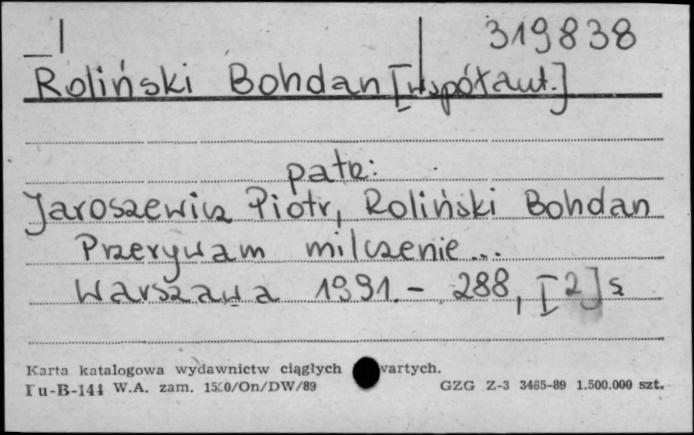 319838
Roliński Bohdan [współaut.]
patrz:
Jaroszewicz Piotr, Roliński Bohdan
Przerywam milczenie...
Warszawa 1991.- 288, [2] s
Karta katalogowa wydawnictw ciągłych wartych.
Pu-B-144 W.A. zam. 1520/On/DW/89 GZG Z-3 3465-89 1.500.000 szt.